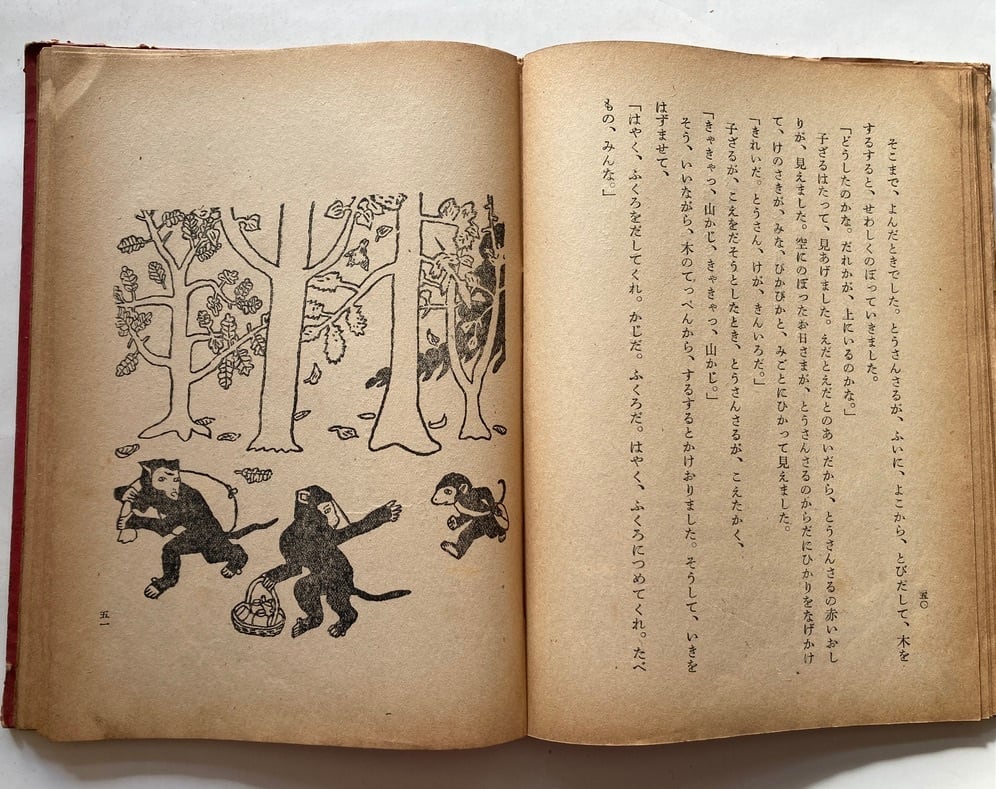 そこまで、よんだときでした。とうさんさるが、ふいに、よこから、とびだして、木を
するすると、せわしくのぼっていきました。
「どうしたのかな。だれかが、上にいるのかな。」
子ざるはたって、見あげました。えだとえだとのあいだから、とうさんさるの赤いおし
りが、見えました。空にのぼったお日さまが、とうさんさるのからだにひかりをなげかけ
て、けのさきが、みな、ぴかぴかと、みごとにひかって見えました。
「きれいだ。とうさん、けが、きんいろだ。」
子ざるが、こえをだそうとしたとき、とうさんさるが、こえたかく、
「きゃきゃっ、山かじ、きゃきゃっ、山かじ。」
そう、いいながら、木のてっぺんから、するするとかけおりました。そうして、いきを
はずませて、
「はやく、ふくろをだしてくれ。かじだ。ふくろだ。はやく、ふくろにつめてくれ。たべ
もの、みんな。」
五〇
五一